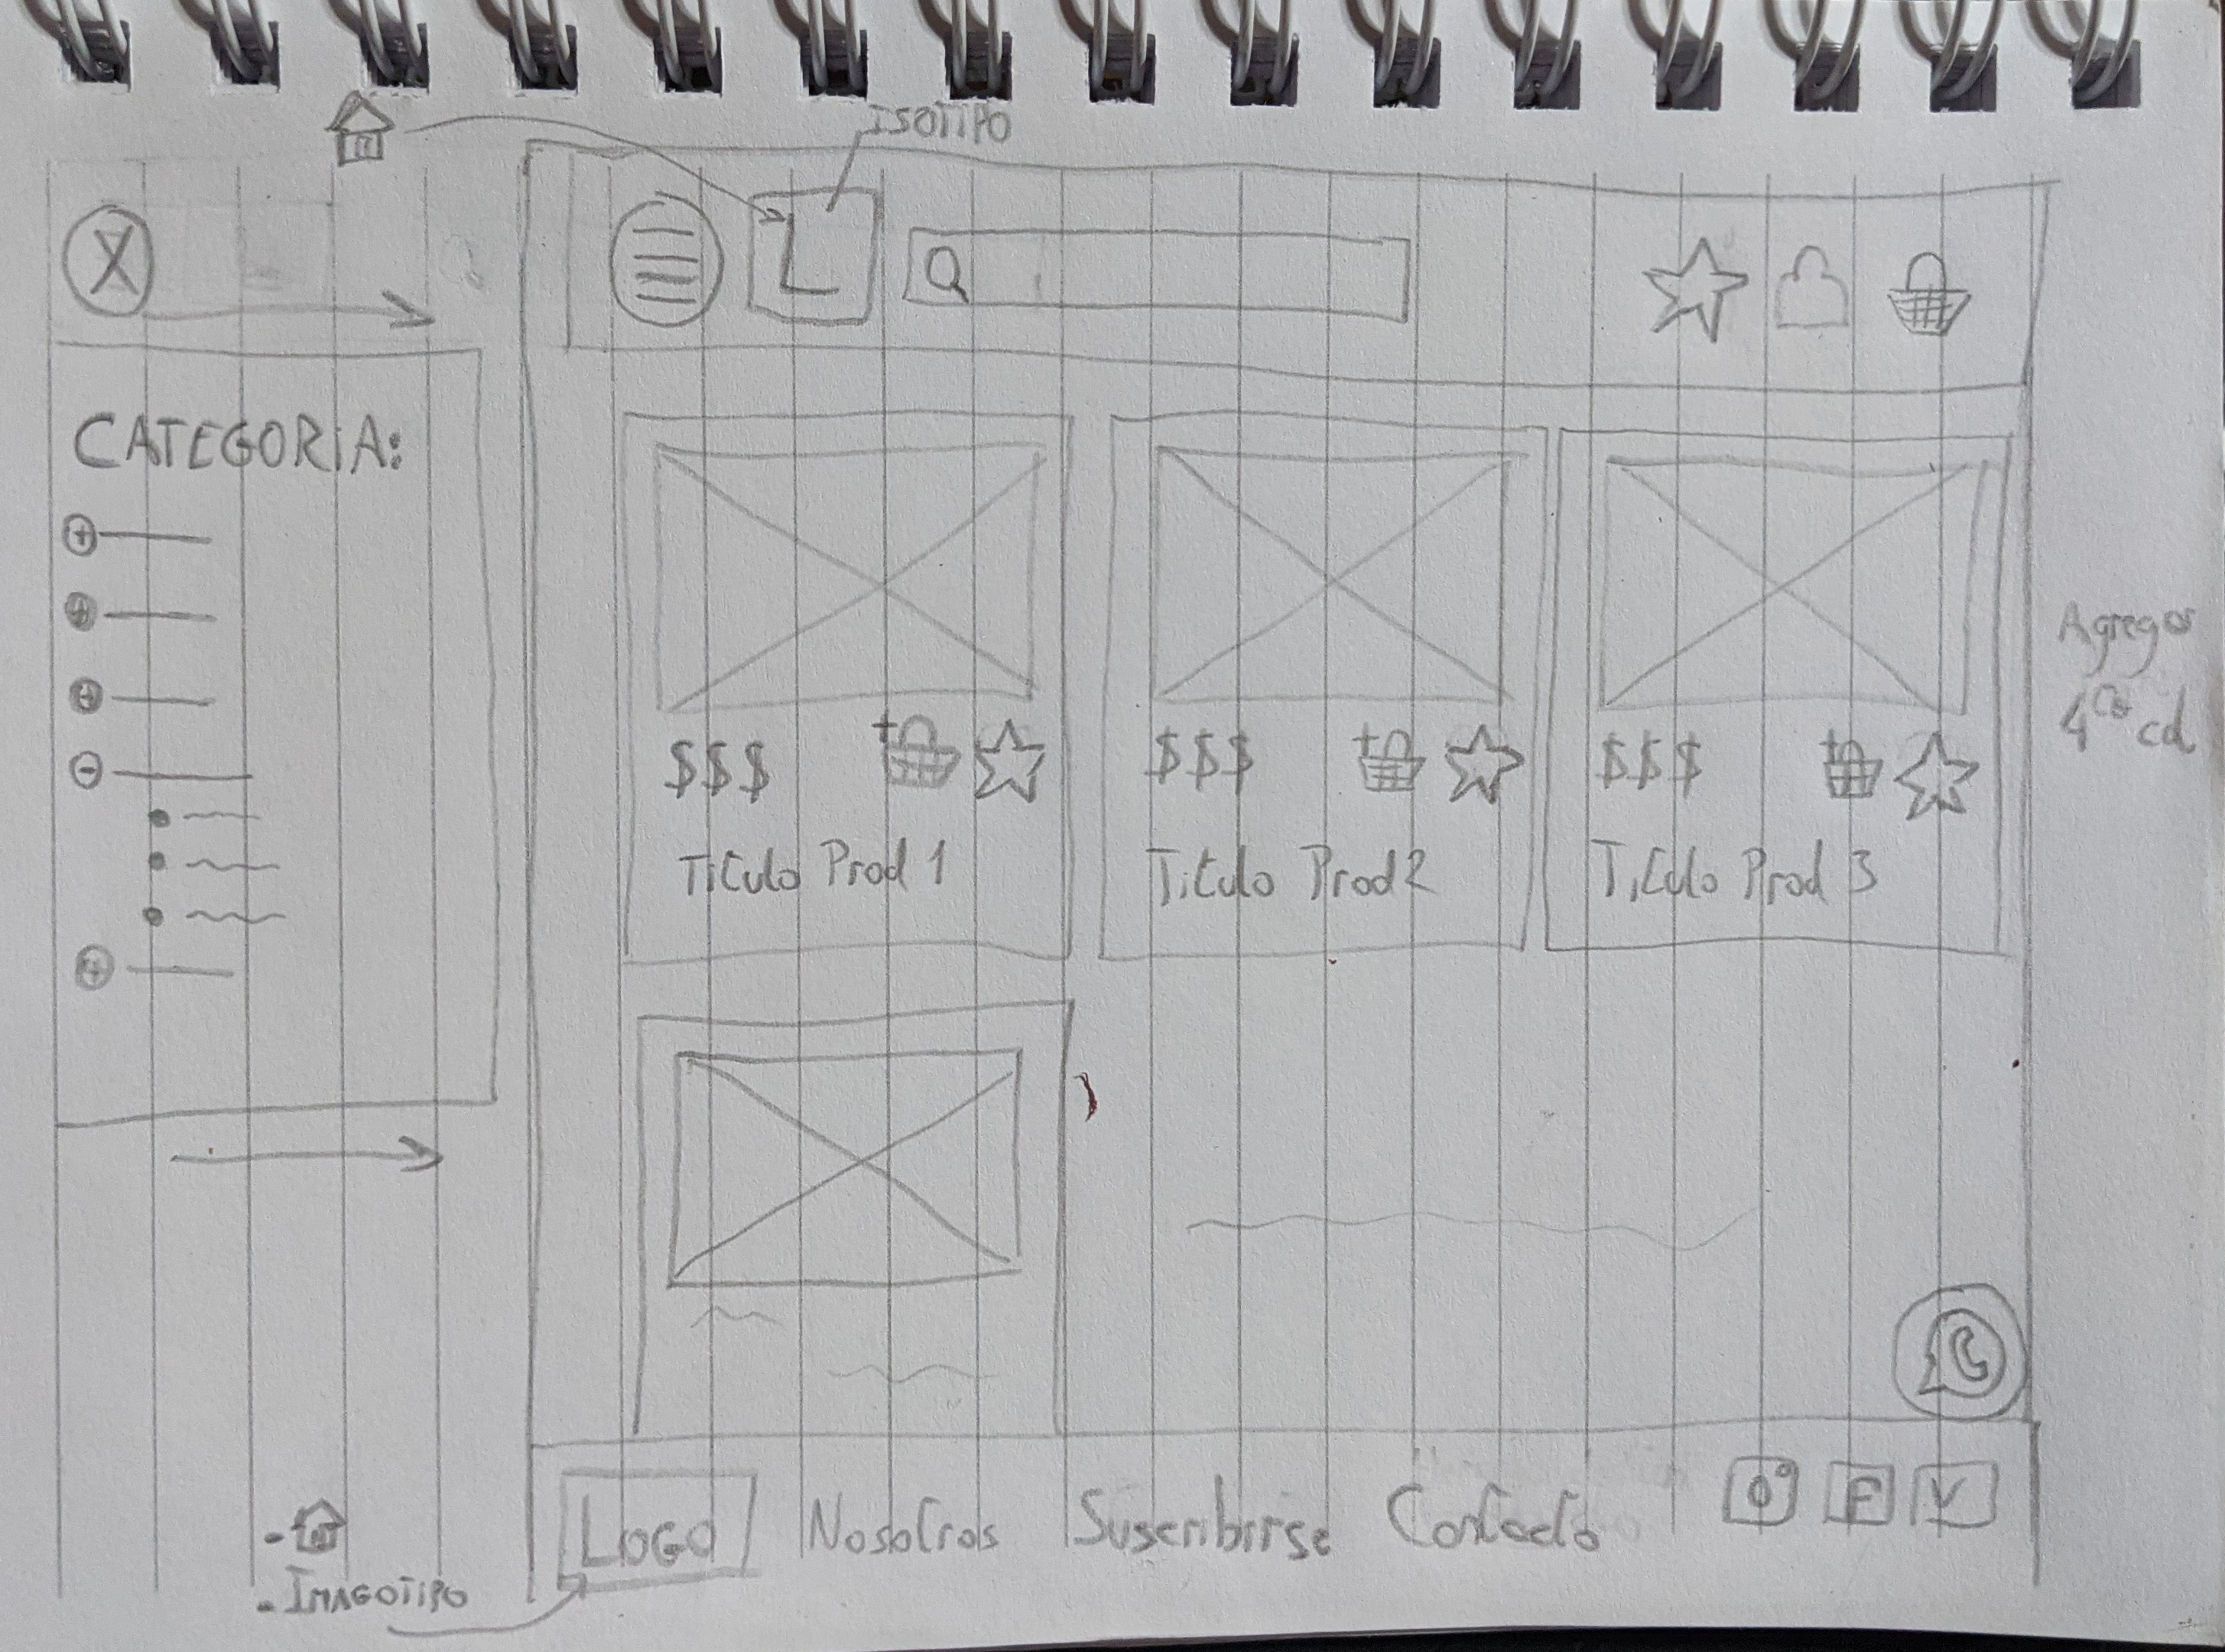 ISOTIPO
L
CATEGORIA:
$$$
$$$
$$$
Titulo Prod 1
Titulo Prod 2
Titulo Prod 3
Agregar
4ta col
LOGO
Nosotros
Suscribirse
Contacto
F
V
- IMAGOTIPO